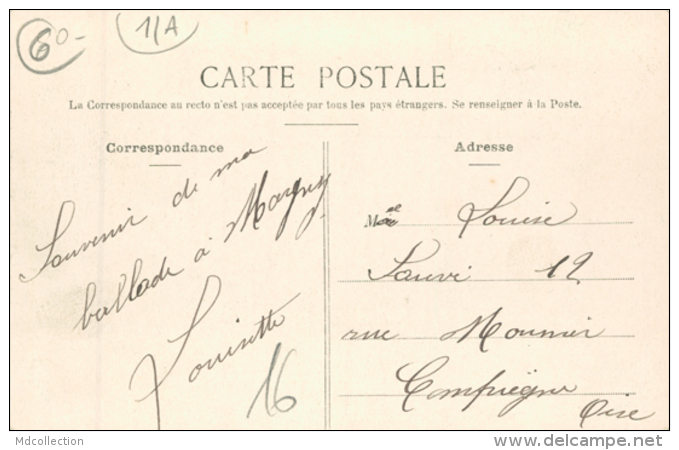 60-
1/A
CARTE POSTALE
La Correspondance au recto n'est pas acceptée par tous les pays étrangers. Se renseigner à la Poste.
Correspondance
Souvenir de ma
ballade à Margny
Louisette
16
Adresse
Mlle Louise
Sauvé 12
rue Mounier
Compiègne
Oise
Mdcollection
www.delcampe.net